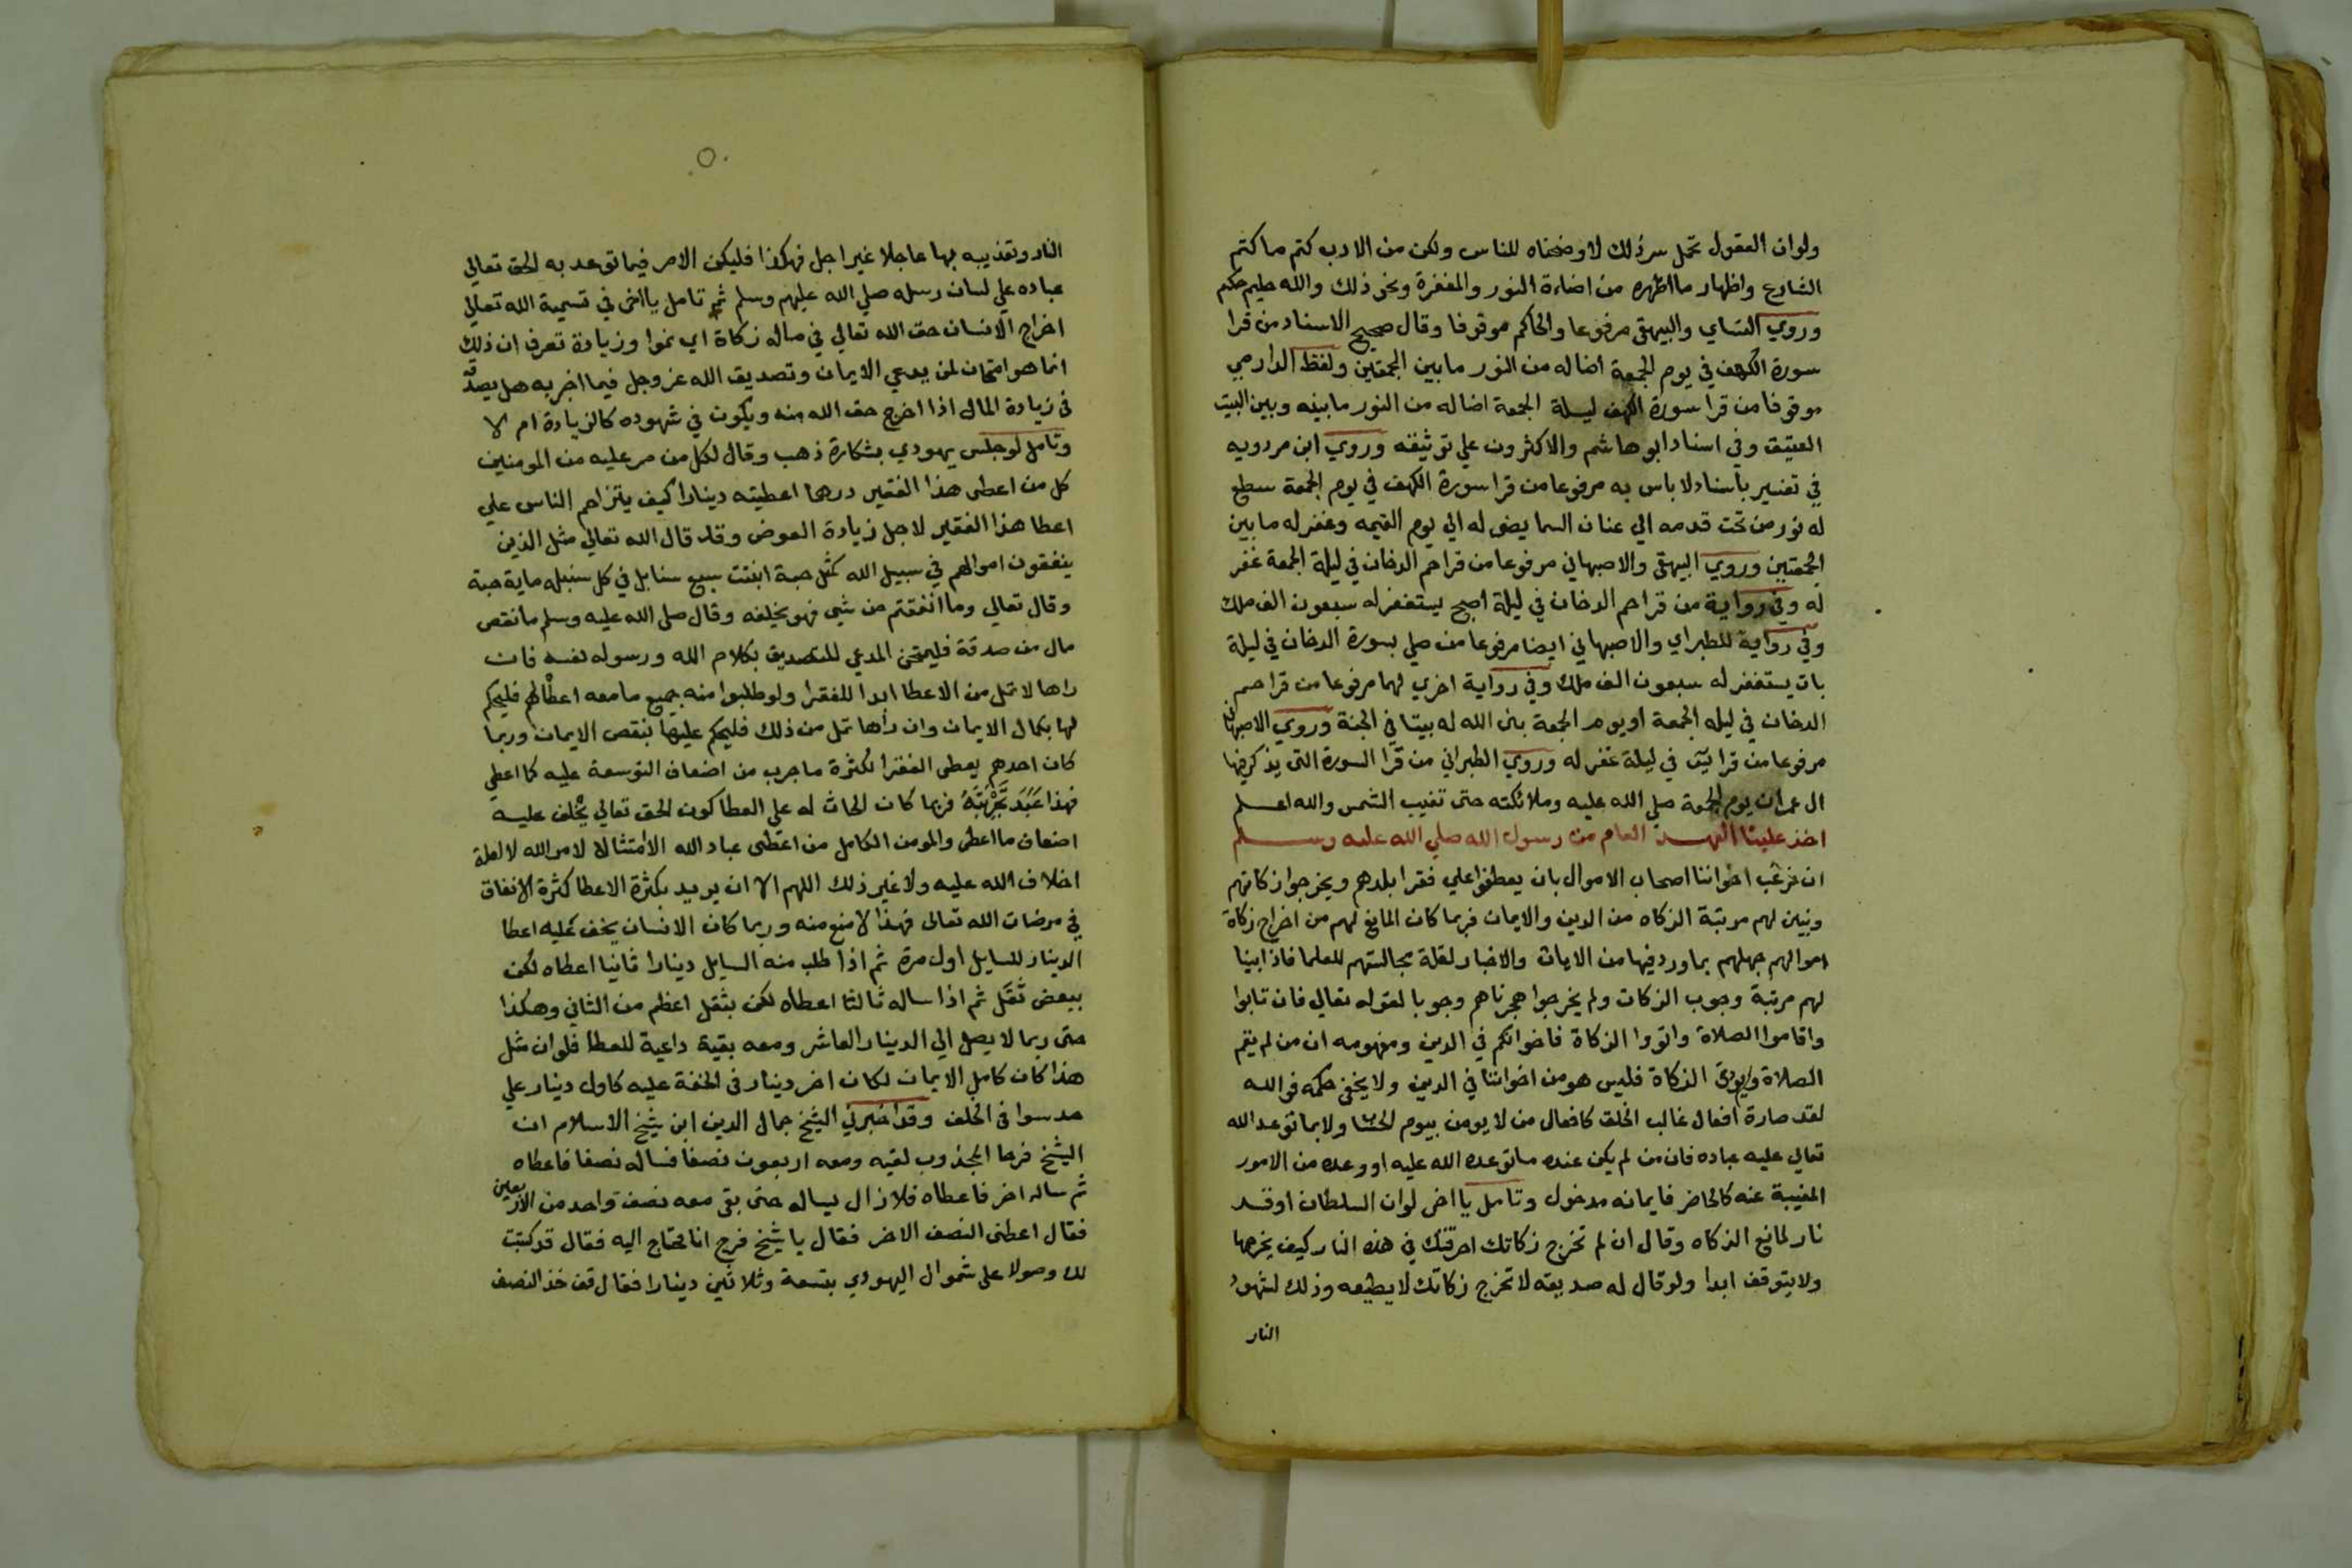 ولوان العقول تحمل سر ذلك لاوضحناه للناس ولكن من الادب كتم ما كتم
الشارع واظهار ما اظهره من اضاءة النور والمغفرة ونحو ذلك والله عليم حكيم
وروي النساي والبيهقي مرفوعا والحاكم موقوفا وقال صحيح الاسناد من قرا
سورة الكهف في يوم الجمعة اضا له من النور ما بين الجمعتين ولفظ الدارمي
موقوفا من قرا سورة الكهف ليلة الجمعة اضا له من النور ما بينه وبين البيت
العتيق وفي اسناد ابو هاشم والاكثرون علي توثيقه وروي ابن مردويه
في تفسير باسناد لا باس به مرفوعا من قرا سورة الكهف في يوم الجمعة سطع
له نور من تحت قدمه الي عنان السما يضي له الي يوم القيمه وغفر له ما بين
الجمعتين وروي البيهقي والاصبهاني مرفوعا من قرا حم الدخان في ليلة الجمعة غفر
له وفي رواية من قرا حم الدخان في ليلة اصبح يستغفر له سبعون الف ملك
وفي رواية للطبراي والاصبهاني ايضا مرفوعا من صلي بسورة الدخان في ليلة
بات يستغفر له سبعون الف ملك وفي رواية اخري لهما مرفوعا من قرا حم
الدخان في ليله الجمعة او يوم الجمعة بني الله له بيتا في الجنة وروي الاصبهاني
مرفوعا من قرا يس في ليلة غفر له وروي الطبراني من قرا السورة التي يذكر فيها
ال عمران يوم الجمعة صلي الله عليه وملائكته حتى تغيب الشمس والله اعلم
اخذ علينا العهد العام من رسول الله صلي الله عليه وسلم
ان نرغب اخواننا اصحاب الاموال بان يعطفوا علي فقرا بلدهم ويخرجوا زكاتهم
ونبين لهم مرتبة الزكاه من الدين والايمان فربما كان المانع لهم من اخراج زكاة
اموالهم جهلهم بما ورد فيها من الايات والاخبار لقلة مجالستهم للعلما فاذا بينا
لهم مرتبة وجوب الزكات ولم يخرجوا هجرناهم وجوبا لقوله تعالي فان تابوا
واقاموا الصلاة واتووا الزكاة فاخوانكم في الدين ومفهومه ان من لم يقم
الصلاة ويودي الزكاة فليس هو من اخواننا في الدين ولا يخفي حكمه فوالله
لقد صارة افعال غالب الخلق كافعال من لا يومن بيوم الحساب ولا بما توعد الله
تعالي عليه عباده فان من لم يكن عنده ما توعده الله عليه او وعده من الامور
المغيبة عنه كالحاضر فايمانه مدخول وتامل يا اخي لوان السلطان اوقد
نار لمانع الزكاه وقال ان لم تخرج زكاتك احرقتك في هذه النار كيف يخرجها
ولا يتوقف ابدا ولو قال له صديقه لا تخرج زكاتك لا يطيعه وذلك لشهود
النار
النار وتعذيبه بها عاجلا غير اجل فهكذا فليكن الامر فيما توعد به الحق تعالي
عباده علي لسان رسله صلي الله عليهم وسلم ثم تامل يا اخي في تسمية الله تعالي
اخراج الانسان حق الله تعالي في ماله زكاة اي نموا وزيادة تعرف ان ذلك
انما هو امتحان لمن يدعي الايمان وتصديق الله عز وجل فيما اخبر به هل يصدقه
في زيادة المال اذا اخرج حق الله منه ويكون في شهوده كالزيادة ام لا
وتامل لو جلس يهودي بشكارة ذهب وقال لكل من مر عليه من المومنين
كل من اعطى هذا الفقير درهما اعطيته دينارا كيف يتزاحم الناس علي
اعطا هذا الفقير لاجل زيادة العوض وقد قال الله تعالي مثل الذين
ينفقون اموالهم في سبيل الله كمثل حبة انبتت سبع سنابل في كل سنبله ماية حبة
وقال تعالي وما انفقتم من شي فهو يخلفه وقال صلي الله عليه وسلم ما نقص
مال من صدقة فليمتحن المدعي للتصديق بكلام الله ورسوله نفسه فان
راها لا تمل من الاعطا ابدا للفقرا ولو طلبوا منه جميع ما معه اعطا لهم فليحكم
لها بكمال الايمان وان راها تمل من ذلك فليحكم عليها بنقص الايمان وربما
كان احدهم يعطي الفقرا لكثرة ما جرب من اضعاف التوسعة عليه كما اعطي
فهذا عَبَدَ تَجْرِبَتَهُ فربما كان الحاث له علي العطا كون الحق تعالي يخلف عليه
اضعاف ما اعطى والمومن الكامل من اعطى عباد الله الا امتثالا لامر الله لا لعلة
اخلاف الله عليه ولا غير ذلك اللهم الا ان يريد بكثرة الاعطا كثرة الانفاق
في مرضات الله تعالى فهذا لا منع منه وربما كان الانسان يخف عليه اعطا
الدينار للسايل اول مرة ثم اذا طلب منه السايل دينارا ثانيا اعطاه لكن
ببعض ثقل ثم اذا ساله ثالثا اعطاه لكن بثقل اعظم من الثاني وهكذا
حتى ربما لا يصل الي الدينار العاشر ومعه بقية داعية للعطا فلوان مثل
هذا كان كامل الايمان لكان اخر دينار في الخفة عليه كاول دينار علي
حد سوا في الخلف وقد اخبرني الشيخ جمال الدين ابن شيخ الاسلام ان
الشيخ فرحا المجذوب لقيه ومعه اربعون نصفا فساله نصفا فاعطاه
ثم ساله اخر فاعطاه فلا زال يساله حتى بقي معه نصف واحد من الاربعين
فقال اعطني النصف الاخر فقال يا شيخ فرج انا محتاج اليه فقال قد كتبت
لك وصولا على شموال اليهودي بتسعة وثلاثين دينارا فقال قف خذ النصف